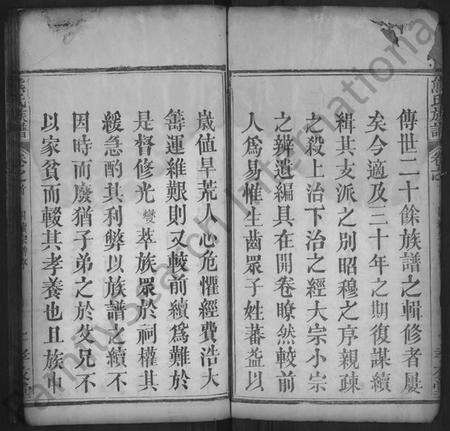 傳世二十餘族譜之輯修者屢
矣今適及三十年之期復謀續
緝其支派之別昭穆之序親疎
之殺上治下治之經大宗小宗
之辨遺編具在開卷瞭然較前
人為易惟生齒眾子姓蕃益以
歲值旱荒人心危懼經費浩大
籌運維艱則又較前續為難於
是督修光 萃族眾於祠權其
緩急酌其利弊以族譜之續不
因時而廢猶子弟之於父兄不
以家貧而輟其孝養也且族中
氏族譜
FamilySearch International